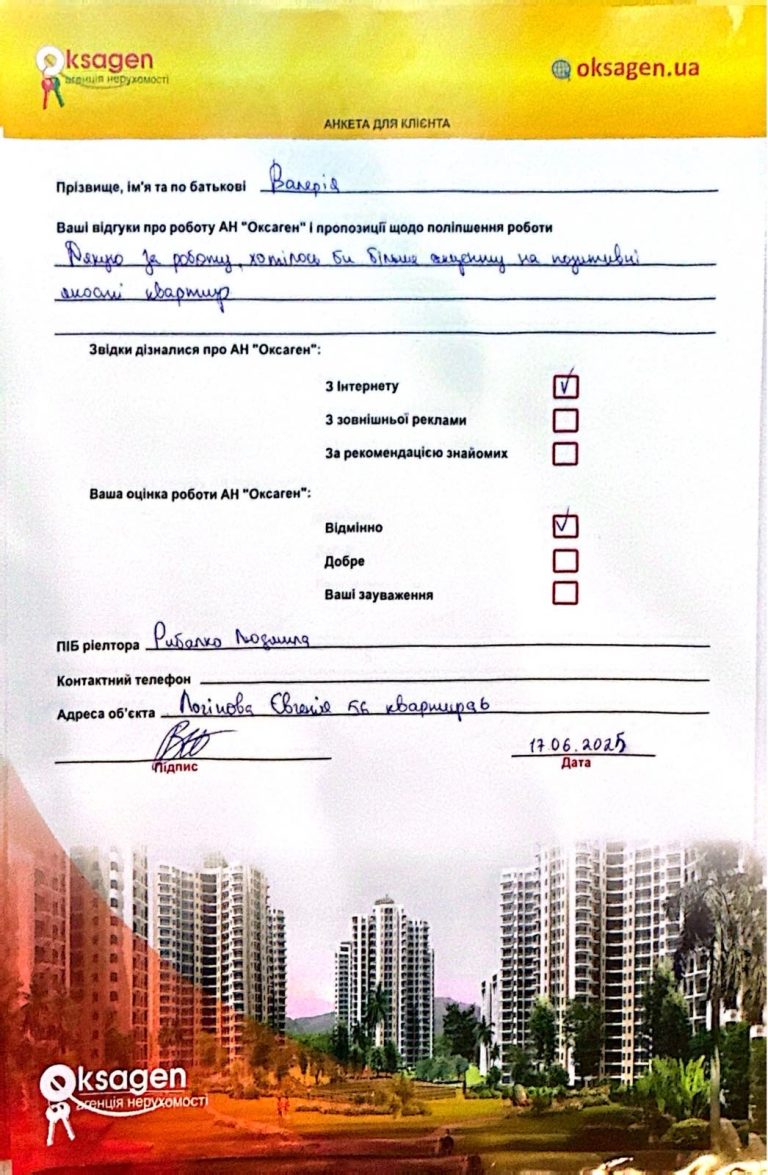 Oksagen
агенція нерухомості
oksagen.ua
АНКЕТА ДЛЯ КЛІЄНТА
Прізвище, ім'я та по батькові Валерія
Ваші відгуки про роботу АН "Оксаген" і пропозиції щодо поліпшення роботи
Дякую за роботу, хотілось би більше акценту на позитивні
якості квартир
Звідки дізналися про АН "Оксаген":
З Інтернету ✓
З зовнішньої реклами
За рекомендацією знайомих
Ваша оцінка роботи АН "Оксаген":
Відмінно ✓
Добре
Ваші зауваження
ПІБ ріелтора Рибалко Людмила
Контактний телефон
Адреса об'єкта Логінова Євгенія 5б квартира
Підпис
17.06.2025
Дата
Oksagen
агенція нерухомості